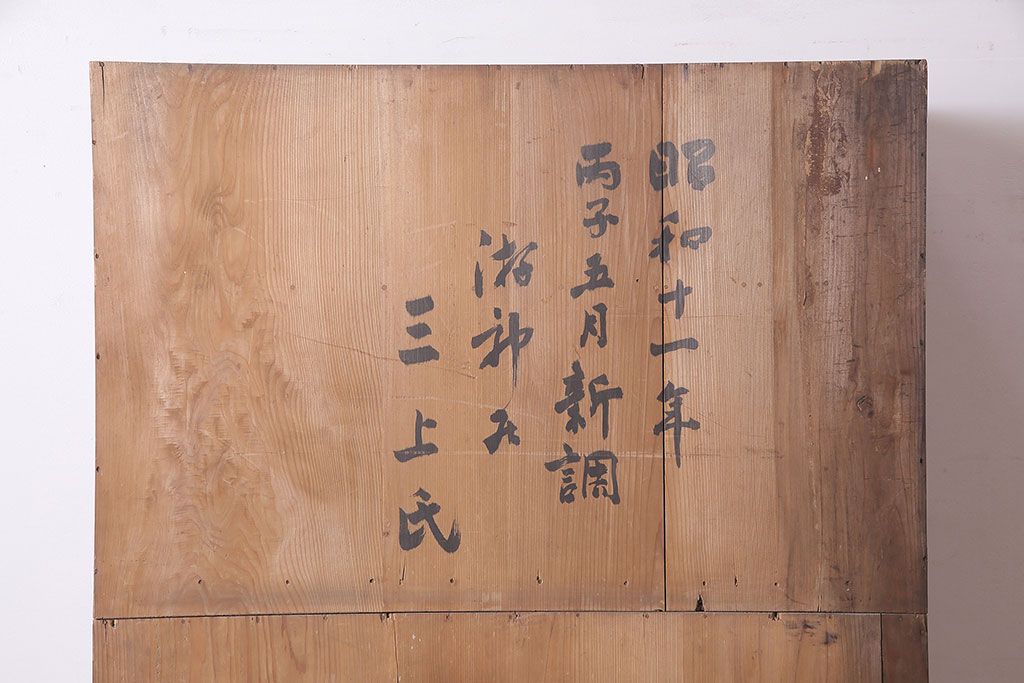 昭和十一年
丙子五月新調
三上氏